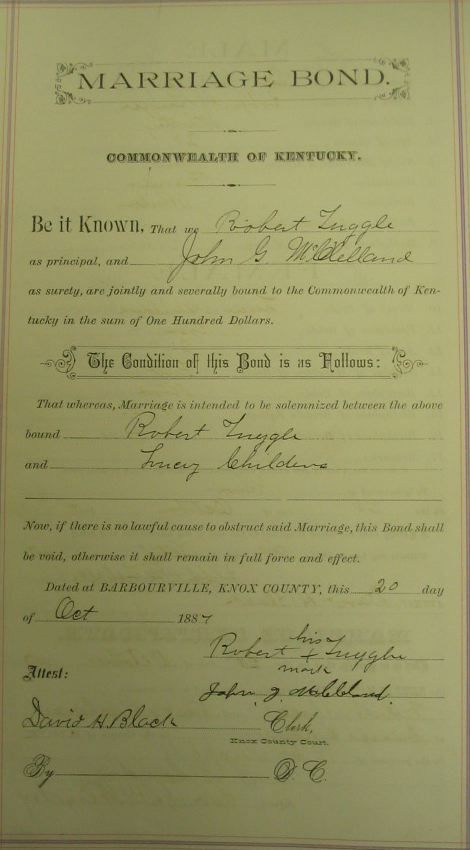 MARRIAGE BOND.
COMMONWEALTH OF KENTUCKY.
Be it Known, That we Robert Tuggle
as principal, and John G. McClelland
as surety, are jointly and severally bound to the Commonwealth of Ken-
tucky in the sum of One Hundred Dollars.
The Condition of this Bond is as Follows:
That whereas, Marriage is intended to be solemnized between the above
bound Robert Tuggle
and Lucy Childers
Now, if there is no lawful cause to obstruct said Marriage, this Bond shall
be void, otherwise it shall remain in full force and effect.
Dated at BARBOURVILLE, KNOX COUNTY, this 20 day
of Oct 1887
his
Robert + Tuggle
mark
Attest:
John G. McClelland.
David H. Black Clerk,
Knox County Court.
By D. C.